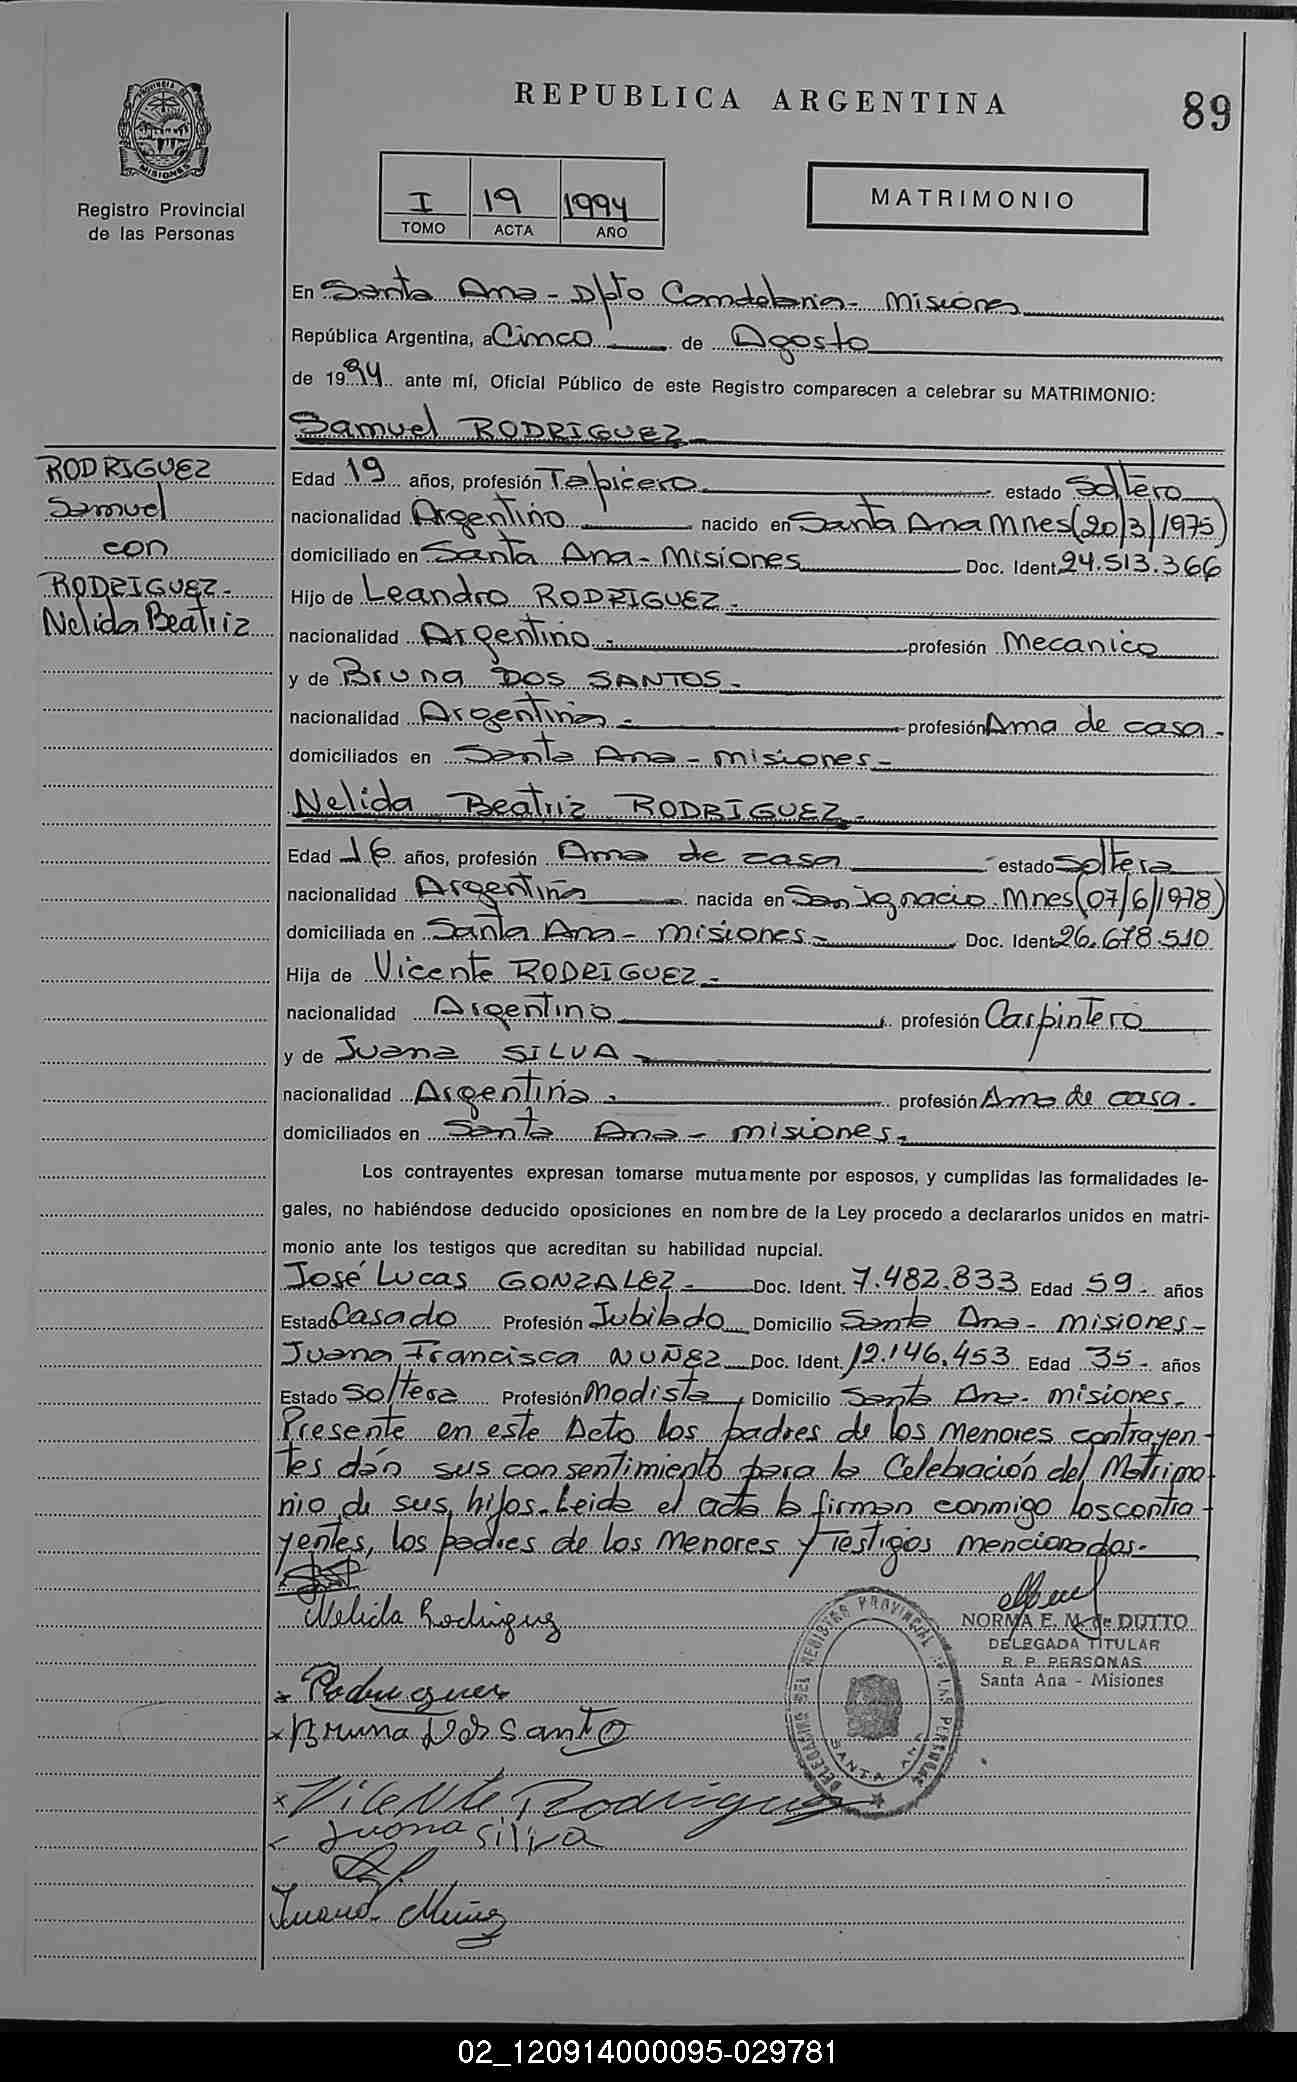 REPUBLICA ARGENTINA
89
PROVINCIA DE
MISIONES
Registro Provincial
de las Personas
I 19 1994
TOMO ACTA AÑO
MATRIMONIO
En Santa Ana - D/pto Candelaria - Misiones
República Argentina, a Cinco de Agosto
de 1994 ante mí, Oficial Público de este Registro comparecen a celebrar su MATRIMONIO:
Samuel RODRIGUEZ
RODRIGUEZ
Samuel
con
RODRIGUEZ.-
Nelida Beatriz
Edad 19 años, profesión Tapicero estado Soltero
nacionalidad Argentino nacido en Santa Ana Mnes (20/3/1975)
domiciliado en Santa Ana - Misiones Doc. Ident. 24.513.366
Hijo de Leandro RODRIGUEZ.-
nacionalidad Argentino.- profesión Mecanico
y de Bruna DOS SANTOS.-
nacionalidad Argentina.- profesión Ama de casa.-
domiciliados en Santa Ana - Misiones.-
Nelida Beatriz RODRIGUEZ.-
Edad 16 años, profesión Ama de casa estado Soltera
nacionalidad Argentina nacida en San Ignacio Mnes (07/6/1978)
domiciliada en Santa Ana - Misiones.- Doc. Ident. 26.678.510
Hija de Vicente RODRIGUEZ.-
nacionalidad Argentino profesión Carpintero
y de Juana SILVA.-
nacionalidad Argentina.- profesión Ama de casa.-
domiciliados en Santa Ana - Misiones.-
Los contrayentes expresan tomarse mutuamente por esposos, y cumplidas las formalidades le-
gales, no habiéndose deducido oposiciones en nombre de la Ley procedo a declararlos unidos en matri-
monio ante los testigos que acreditan su habilidad nupcial.
José Lucas GONZALEZ.- Doc. Ident. 7.482.833 Edad 59.- años
Estado Casado Profesión Jubilado Domicilio Santa Ana - Misiones.-
Juana Francisca NUÑEZ Doc. Ident. 12.146.453 Edad 35.- años
Estado Soltera Profesión Modista, Domicilio Santa Ana - Misiones.-
Presente en este Acto los padres de los Menores contrayen-
tes dán sus consentimiento para la Celebración del Matrimo-
nio de sus hijos. Leida el acta la firman conmigo los contra-
yentes, los padres de los Menores y Testigos mencionados.-
Nelida Rodriguez
NORMA E. M. de DUTTO
DELEGADA TITULAR
R. P. PERSONAS
Santa Ana - Misiones
DELEGACION DEL REGISTRO PROVINCIAL DE LAS PERSONAS
SANTA ANA
x Rodriguez
x Bruna Dos Santo
x Vicente Rodriguez
x Juana Silva
Juana Nuñez
02_120914000095-029781